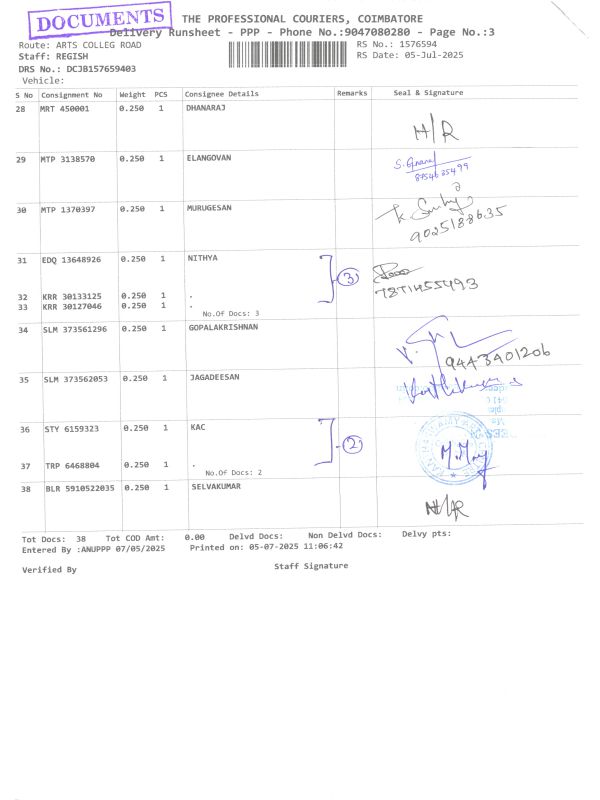 DOCUMENTS
THE PROFESSIONAL COURIERS, COIMBATORE
Delivery Runsheet - PPP - Phone No.:9047080280 - Page No.:3
Route: ARTS COLLEG ROAD
RS No.: 1576594
Staff: REGISH
RS Date: 05-Jul-2025
DRS No.: DCJB157659403
Vehicle:
S No Consignment No Weight PCS Consignee Details Remarks Seal & Signature
28 MRT 450001 0.250 1 DHANARAJ
H/R
29 MTP 3138570 0.250 1 ELANGOVAN
30 MTP 1370397 0.250 1 MURUGESAN
9025188635
31 EDQ 13648926 0.250 1 NITHYA
3
32 KRR 30133125 0.250 1 .
33 KRR 30127046 0.250 1 .
No.Of Docs: 3
34 SLM 373561296 0.250 1 GOPALAKRISHNAN
9443401206
35 SLM 373562053 0.250 1 JAGADEESAN
36 STY 6159323 0.250 1 KAC
2
37 TRP 6468804 0.250 1 .
No.Of Docs: 2
38 BLR 5910522035 0.250 1 SELVAKUMAR
Tot Docs: 38 Tot COD Amt: 0.00 Delvd Docs: Non Delvd Docs: Delvy pts:
Entered By :ANUPPP 07/05/2025 Printed on: 05-07-2025 11:06:42
Verified By
Staff Signature